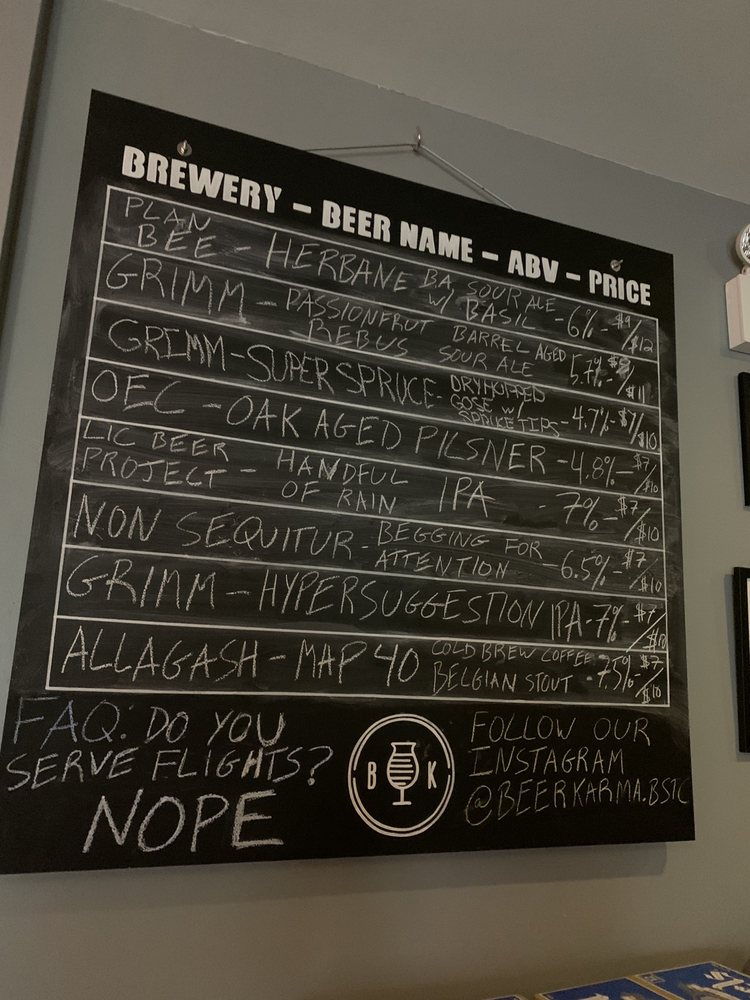 BREWERY - BEER NAME - ABV - PRICE
PLAN BEE - HERBANE BA SOUR ALE W/ BASIL - 6% - $9/$12
GRIMM - PASSIONFRUT REBUS BARREL AGED SOUR ALE 5.7% - /$11
GRIMM - SUPER SPRUCE - DRY HOPPED GOSE W/ SPRUCE TIPS - 4.7% - $7/$10
OEC - OAK AGED PILSNER - 4.8% - $7/$10
LIC BEER PROJECT - HANDFUL OF RAIN IPA - 7% - $7/$10
NON SEQUITUR - BEGGING FOR ATTENTION - 6.5% - $7/$10
GRIMM - HYPERSUGGESTION IPA - 7% - $7/$10
ALLAGASH - MAP 40 COLD BREW COFFEE BELGIAN STOUT - 7.5% - $7/$10
FAQ: DO YOU
SERVE FLIGHTS?
NOPE
B K
FOLLOW OUR
INSTAGRAM
@BEERKARMA.BSTC